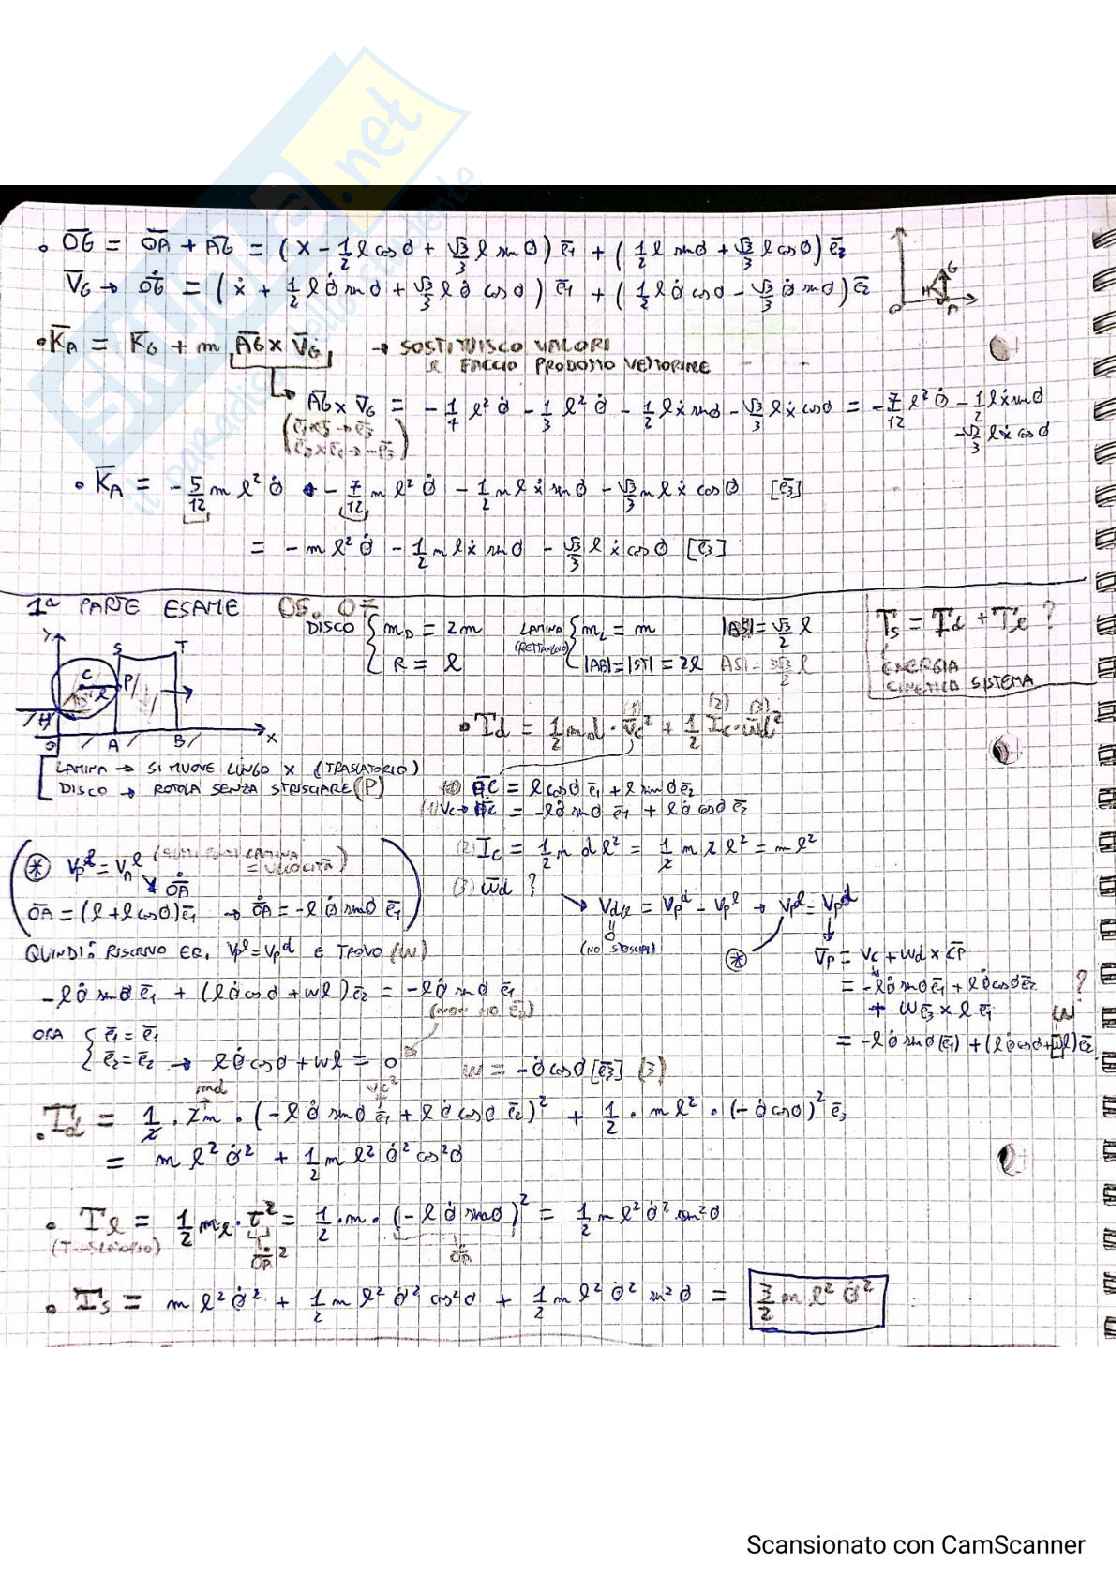 • O̅G̅ = O̅A̅ + A̅G̅ = (x - 1/2 l cosθ + √3/3 l sinθ) e̅₁ + (1/2 l sinθ + √3/3 l cosθ) e̅₂
V̅G → O̅G̅˙ = (ẋ + 1/2 l θ̇ sinθ + √3/3 l θ̇ cosθ) e̅₁ + (1/2 l θ̇ cosθ - √3/3 θ̇ sinθ) e̅₂
• K̅A = K̅G + m A̅G̅ × V̅G → SOSTITUISCO VALORI
E FACCIO PRODOTTO VETTORIALE
A̅G̅ × V̅G = - 1/4 l² θ̇ - 1/3 l² θ̇ - 1/2 l ẋ sinθ - √3/3 l ẋ cosθ = - 7/12 l² θ̇ - 1/2 l ẋ sinθ
- √3/3 l ẋ cosθ
• K̅A = - 5/12 m l² θ̇ - 7/12 m l² θ̇ - 1/2 m l ẋ sinθ - √3/3 m l ẋ cosθ [e̅₃]
= - m l² θ̇ - 1/2 m l ẋ sinθ - √3/3 l ẋ cosθ [e̅₃]
1ª PARTE ESAME 05.07
DISCO { mD = 2m
R = l
LAMINA (RETTANGOLO) { mL = m
|AB| = |ST| = 2l
Ts = Td + Te ?
ENERGIA
CINETICA SISTEMA
y S T
C P
H
O A B x
• Td = 1/2 md · V̅c² + 1/2 Ic · ω̅d²
(1) (2) (3)
LAMINA → SI MUOVE LUNGO X (TRASLATORIO)
DISCO → ROTOLA SENZA STRISCIARE (P)
= l cosθ e̅₁ + l sinθ e̅₂
(1) Vc → = - l θ̇ sinθ e̅₁ + l θ̇ cosθ e̅₂
(2) Ic = 1/2 m d l² = 1/2 m 2 l² = m l²
(3) ω̅d ?
⊛ Vp^l = VA^l
O̅A̅˙
O̅A̅ = (l + l cosθ) e̅₁ → O̅A̅˙ = - l θ̇ sinθ e̅₁
→ Vd,l = Vp^d - Vp^l → Vp^l = Vp^d
0
⊛
V̅p = Vc + ωd × C̅P̅
= - l θ̇ sinθ e̅₁ + l θ̇ cosθ e̅₂
+ ω e̅₃ × l e̅₁
ω ?
= - l θ̇ sinθ (e̅₁) + (l θ̇ cosθ + ω l) e̅₂
QUINDI: RISCRIVO EQ. Vp^l = Vp^d E TROVO (ω)
- l θ̇ sinθ e̅₁ + (l θ̇ cosθ + ω l) e̅₂ = - l θ̇ sinθ e̅₁
ORA { e̅₁ = e̅₁
e̅₂ = e̅₂ → l θ̇ cosθ + ω l = 0
ω = - θ̇ cosθ [e̅₃] (3)
• Td = 1/2 · 2m · (- l θ̇ sinθ e̅₁ + l θ̇ cosθ e̅₂)² + 1/2 · m l² · (- θ̇ cosθ)² e̅₃
= m l² θ̇² + 1/2 m l² θ̇² cos²θ
• Te = 1/2 ml · v² = 1/2 · m · (- l θ̇ sinθ)² = 1/2 m l² θ̇² sin²θ
• Ts = m l² θ̇² + 1/2 m l² θ̇² cos²θ + 1/2 m l² θ̇² sin²θ = 3/2 m l² θ̇²
Scansionato con CamScanner